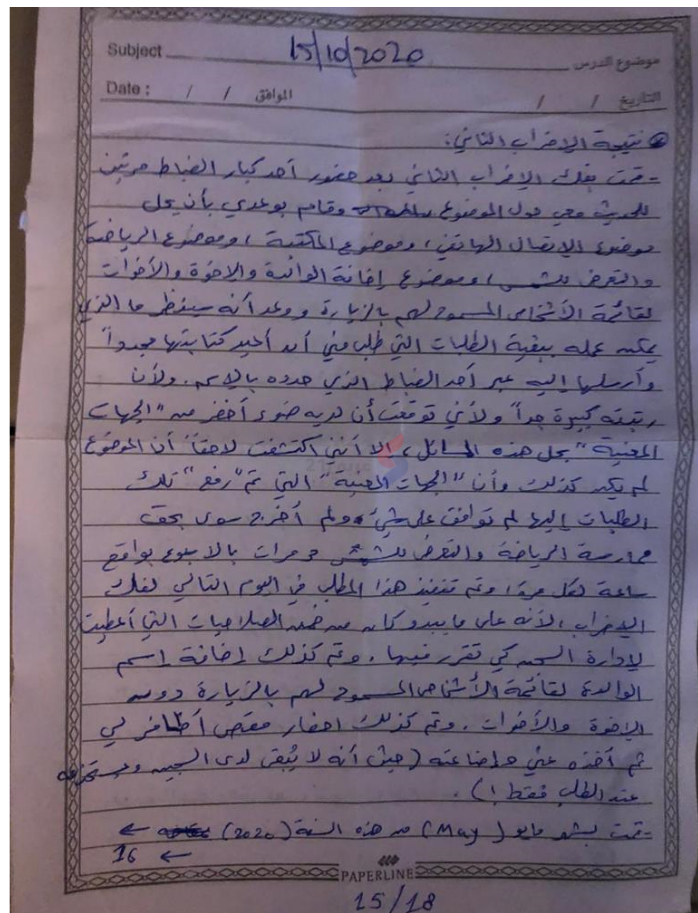 Subject 15/10/2020 موضوع الدرس
Date : / / الموافق / / التاريخ
نتيجة الإضراب الثاني:
- قمت بفك الإضراب الثاني بعد حضور أحد كبار الضباط مرتين
للحديث معي حول الموضوع وقام بوعدي بأن يحل
موضوع الإتصال الهاتفي، وموضوع المكتبة، وموضوع الرياضة
والتعرض للشمس، وموضوع إضافة الوالدة والإخوة والأخوات
لقائمة الأشخاص المسموح لهم بالزيارة ووعد أنه سينظر ما الذي
يمكن عمله ببقية الطلبات التي طلب مني أن أعيد كتابتها مجدداً
وأرسلها إليه عبر أحد الضباط الذي حدده بالاسم. ولأن
رتبته كبيرة جداً ولأني توقعت أن لديه ضوء أخضر من "الجهات
المعنية" بحل هذه المسائل، إلا أنني اكتشفت لاحقاً أن الموضوع
لم يكن كذلك وأن "الجهات المعنية" التي تم "رفع" تلك
الطلبات إليها لم توافق على شيء ولم أخرج سوى بحق
ممارسة الرياضة والتعرض للشمس ٣ مرات بالأسبوع بواقع
ساعة لكل مرة، وتم تنفيذ هذا المطلب في اليوم التالي لفك
الإضراب، لأنه على ما يبدو كان من ضمن الصلاحيات التي أعطيت
لإدارة السجن كي تقرر فيها. وتم كذلك إضافة إسم
الوالدة لقائمة الأشخاص المسموح لهم بالزيارة دون
الإخوة والأخوات. وتم كذلك احضار مقص أظافر لي
ثم أخذه عني (حيث أنه لا يُبقى لدى السجين
عند الطلب فقط!).
- قمت بشهر مايو (May) من هذه السنة (2020) ←
16 ←
PAPERLINE
15/18